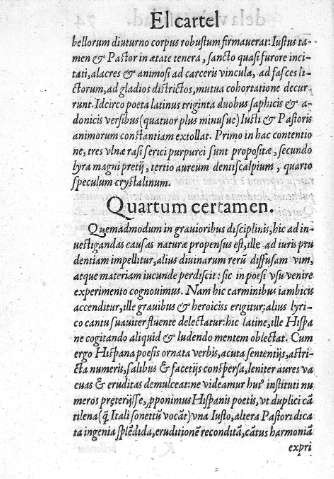 El cartel
bellorum diuturno corpus robustum firmauerat: Iustus ta-
men & Pastor in ætate tenera, sancto quasi furore inci-
tati, alacres & animosi ad carceris vincula, ad fasces li-
ctorum, ad gladios districtos, mutua cohortatione decur-
runt. Idcirco poeta latinus triginta duobus saphicis & a-
donicis versibus (quatuor plus minusue) Iusti & Pastoris
animorum constantiam extollat. Primo in hac contentio
ne, tres vlnæ rasi serici purpurei sunt propositæ, secundo
lyra magni pretij, tertio aureum dentiscalpium, quarto
speculum crystalinum.
Quartum certamen.
Quemadmodum in grauioribus disciplinis, hic ad in-
uestigandas causas naturæ propensus est, ille ad iuris pru
dentiam impellitur, alius diuinarum rerū diffusam vim,
atque materiam iucunde perdiscit: sic in poesi vsu venire
experimento cognouimus. Nam hic carminibus iambicis
accenditur, ille grauibus & heroicis erigitur, alius lyri-
co cantu suauiter fluente delectatur: hic latine, ille Hispa
ne cogitando aliquid & ludendo mentem oblectat. Cum
ergo Hispana poesis ornata verbis, acuta sententijs, astri-
cta numeris, salibus & facetijs conspersa, leniter aures va
cuas & eruditas demulceat: ne videamur huꝰ instituti nu
meros preterijsse, ꝓponimus Hispanis poetis, vt duplici cā
tilena (q̄ Itali sonetti vocāt) vna Iusto, altera Pastori dica
ta ingenia splēdida, eruditionē reconditā, cātus harmoniā
expri